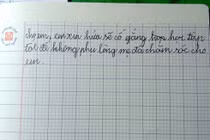 chọn, em xin hứa sẽ cố gắng học tập
tốt để không phụ lòng mẹ đã chăm sóc cho
em.